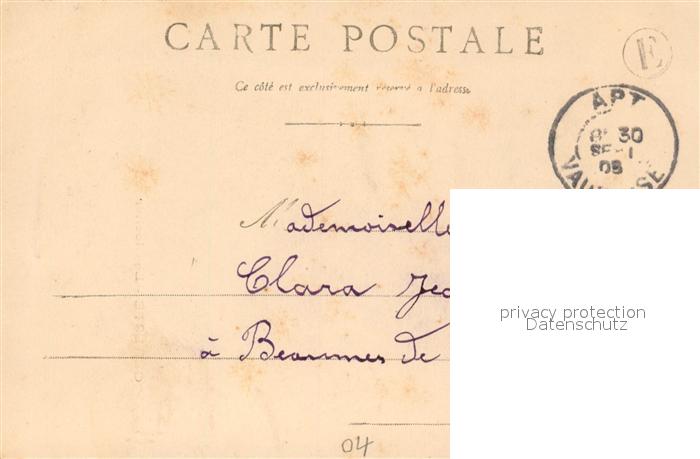 CARTE POSTALE
E
Ce côté est exclusivement réservé a l'adresse
APT
30
SE
05
VAUCLUSE
Mademoiselle
Clara
à Beaumes de
privacy protection
Datenschutz
04